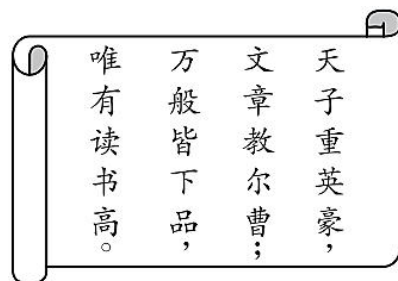 天子重英豪，
文章教尔曹；
万般皆下品，
唯有读书高。